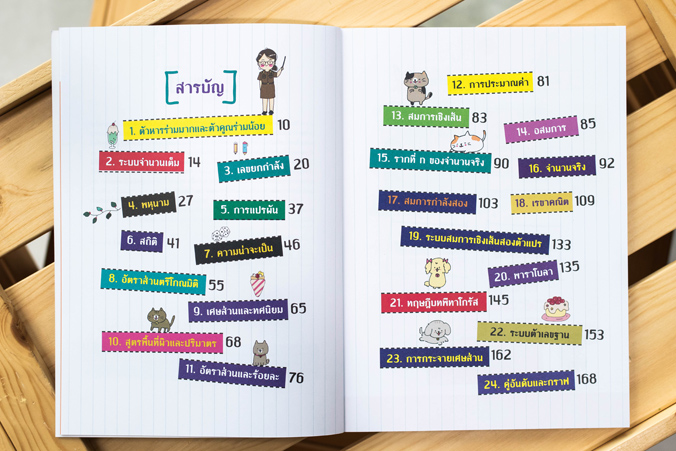 สารบัญ
1. ตัวหารร่วมมากและตัวคูณร่วมน้อย 10
2. ระบบจำนวนเต็ม 14
3. เลขยกกำลัง 20
4. พหุนาม 27
5. การแปรผัน 37
6. สถิติ 41
7. ความน่าจะเป็น 46
8. อัตราส่วนตรีโกณมิติ 55
9. เศษส่วนและทศนิยม 65
10. สูตรพื้นที่ผิวและปริมาตร 68
11. อัตราส่วนและร้อยละ 76
12. การประมาณค่า 81
13. สมการเชิงเส้น 83
14. อสมการ 85
15. รากที่ n ของจำนวนจริง 90
16. จำนวนจริง 92
17. สมการกำลังสอง 103
18. เรขาคณิต 109
19. ระบบสมการเชิงเส้นสองตัวแปร 133
20. พาราโบลา 135
21. ทฤษฎีบทพีทาโกรัส 145
22. ระบบตัวเลขฐาน 153
23. การกระจายเศษส่วน 162
24. คู่อันดับและกราฟ 168